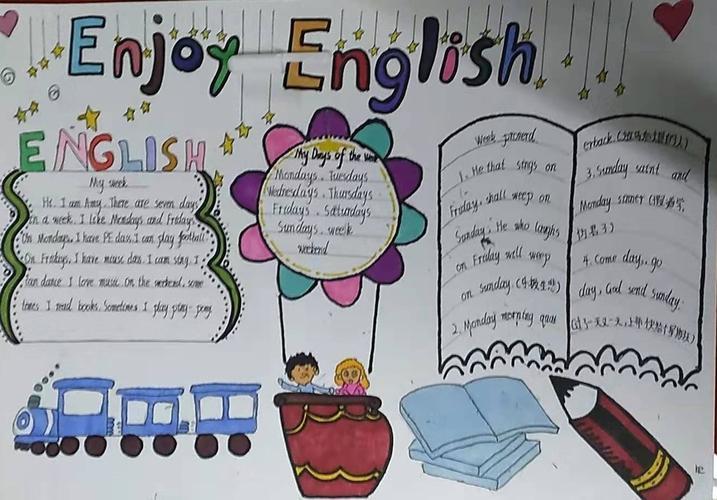 Enjoy English
ENGLISH
My week
Hi. I am Amy. There are seven days
in a week. I like Mondays and Fridays
On Mondays, I have PE class. I can play football
On Fridays, I have music class. I can sing. I
can dance. I love music. On the weekend, some
times I read books. Sometimes I play ping-pong
My Days of the week
Mondays. Tuesdays
Wednesdays. Thursdays
Fridays. Saturdays
Sundays. week
weekend
Week proverd
1. He that sings on
Friday, shall weep on
Sunday. He who laughs
on Friday will weep
on sunday.
2. Monday morning quar
erback.
3. Sunday saint and
Monday sinner
4. Come day, go
day, God send sunday.